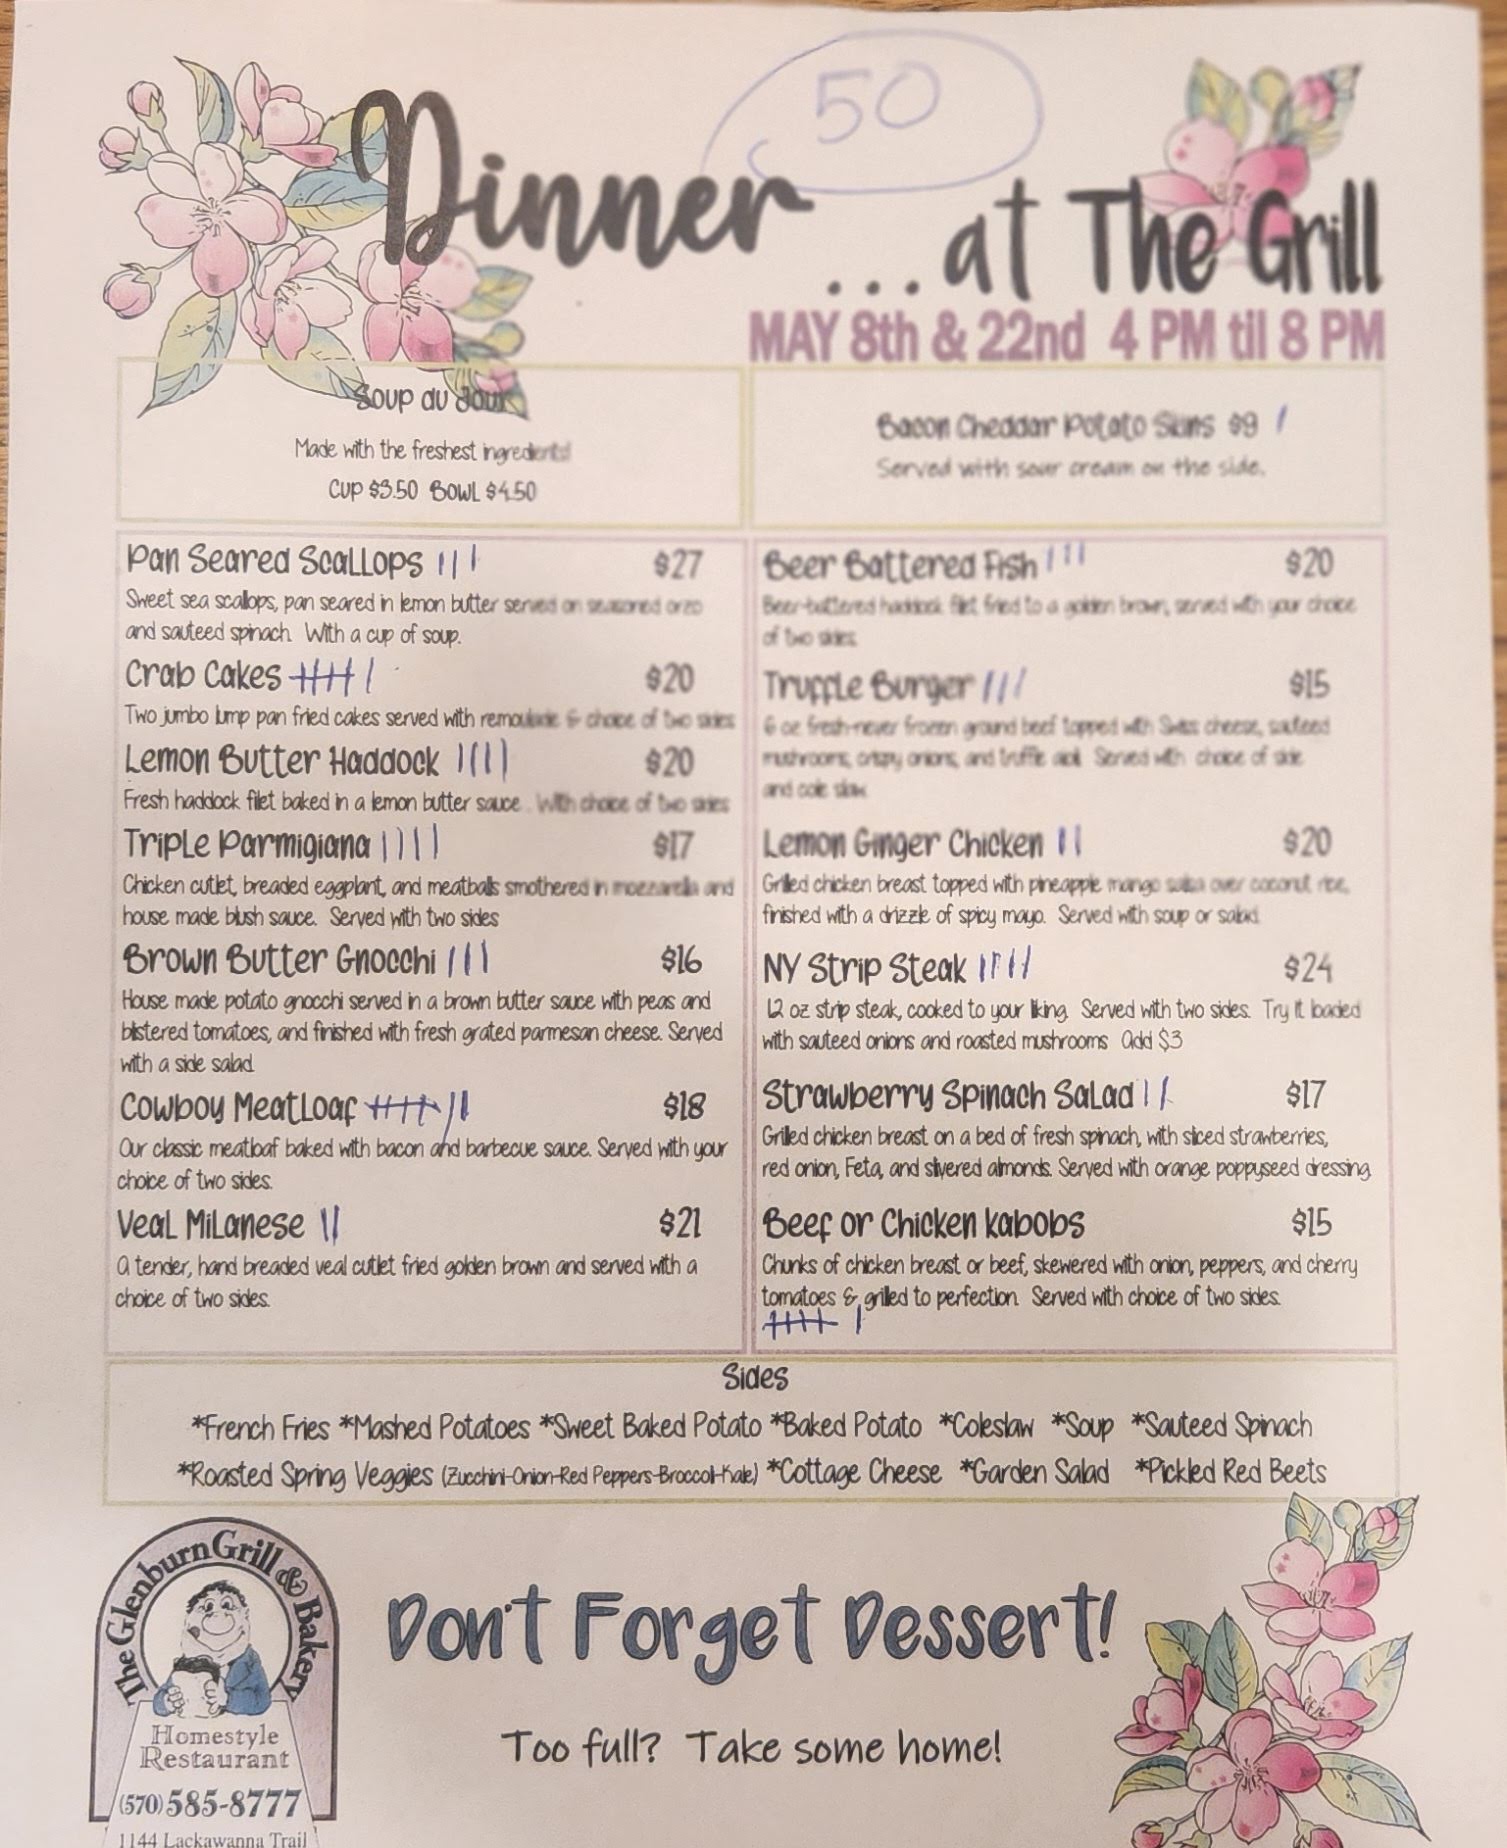 50
Dinner
... at The Grill
MAY 8th & 22nd 4 PM til 8 PM
Soup du Jour
Made with the freshest ingredients!
Cup $3.50 Bowl $4.50
Bacon Cheddar Potato Skins $9
Served with sour cream on the side.
Pan Seared Scallops $27
Sweet sea scallops, pan seared in lemon butter served on seasoned orzo
and sauteed spinach. With a cup of soup.
Crab Cakes $20
Two jumbo lump pan fried cakes served with remoulade & choice of two sides
Lemon Butter Haddock $20
Fresh haddock filet baked in a lemon butter sauce. With choice of two sides
Triple Parmigiana $17
Chicken cutlet, breaded eggplant, and meatballs smothered in mozzarella and
house made blush sauce. Served with two sides
Brown Butter Gnocchi $16
House made potato gnocchi served in a brown butter sauce with peas and
blistered tomatoes, and finished with fresh grated parmesan cheese. Served
with a side salad
Cowboy Meatloaf $18
Our classic meatloaf baked with bacon and barbecue sauce. Served with your
choice of two sides.
Veal Milanese $21
A tender, hand breaded veal cutlet fried golden brown and served with a
choice of two sides.
Beer Battered Fish $20
Beer-battered haddock filet fried to a golden brown, served with your choice
of two sides
Truffle Burger $15
6 oz fresh-never frozen ground beef topped with Swiss cheese, sauteed
mushrooms, crispy onions, and truffle aioli. Served with choice of side
and cole slaw
Lemon Ginger Chicken $20
Grilled chicken breast topped with pineapple mango salsa over coconut rice,
finished with a drizzle of spicy mayo. Served with soup or salad
NY Strip Steak $24
12 oz strip steak, cooked to your liking. Served with two sides. Try it loaded
with sauteed onions and roasted mushrooms Add $3
Strawberry Spinach Salad $17
Grilled chicken breast on a bed of fresh spinach, with sliced strawberries,
red onion, Feta, and slivered almonds. Served with orange poppyseed dressing.
Beef or Chicken Kabobs $15
Chunks of chicken breast or beef, skewered with onion, peppers, and cherry
tomatoes & grilled to perfection. Served with choice of two sides.
Sides
*French Fries *Mashed Potatoes *Sweet Baked Potato *Baked Potato *Coleslaw *Soup *Sauteed Spinach
*Roasted Spring Veggies (Zucchini-Onion-Red Peppers-Broccoli-Kale) *Cottage Cheese *Garden Salad *Pickled Red Beets
The Glenburn Grill & Bakery
Homestyle
Restaurant
(570) 585-8777
1144 Lackawanna Trail
Don't Forget Dessert!
Too full? Take some home!